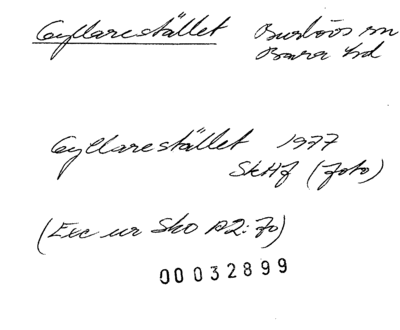 Gyllarestället Burlövs sn
Bara hd
Gyllarestället 1977
SkHf (foto)
(Exc ur SkO A2:70)
00032899